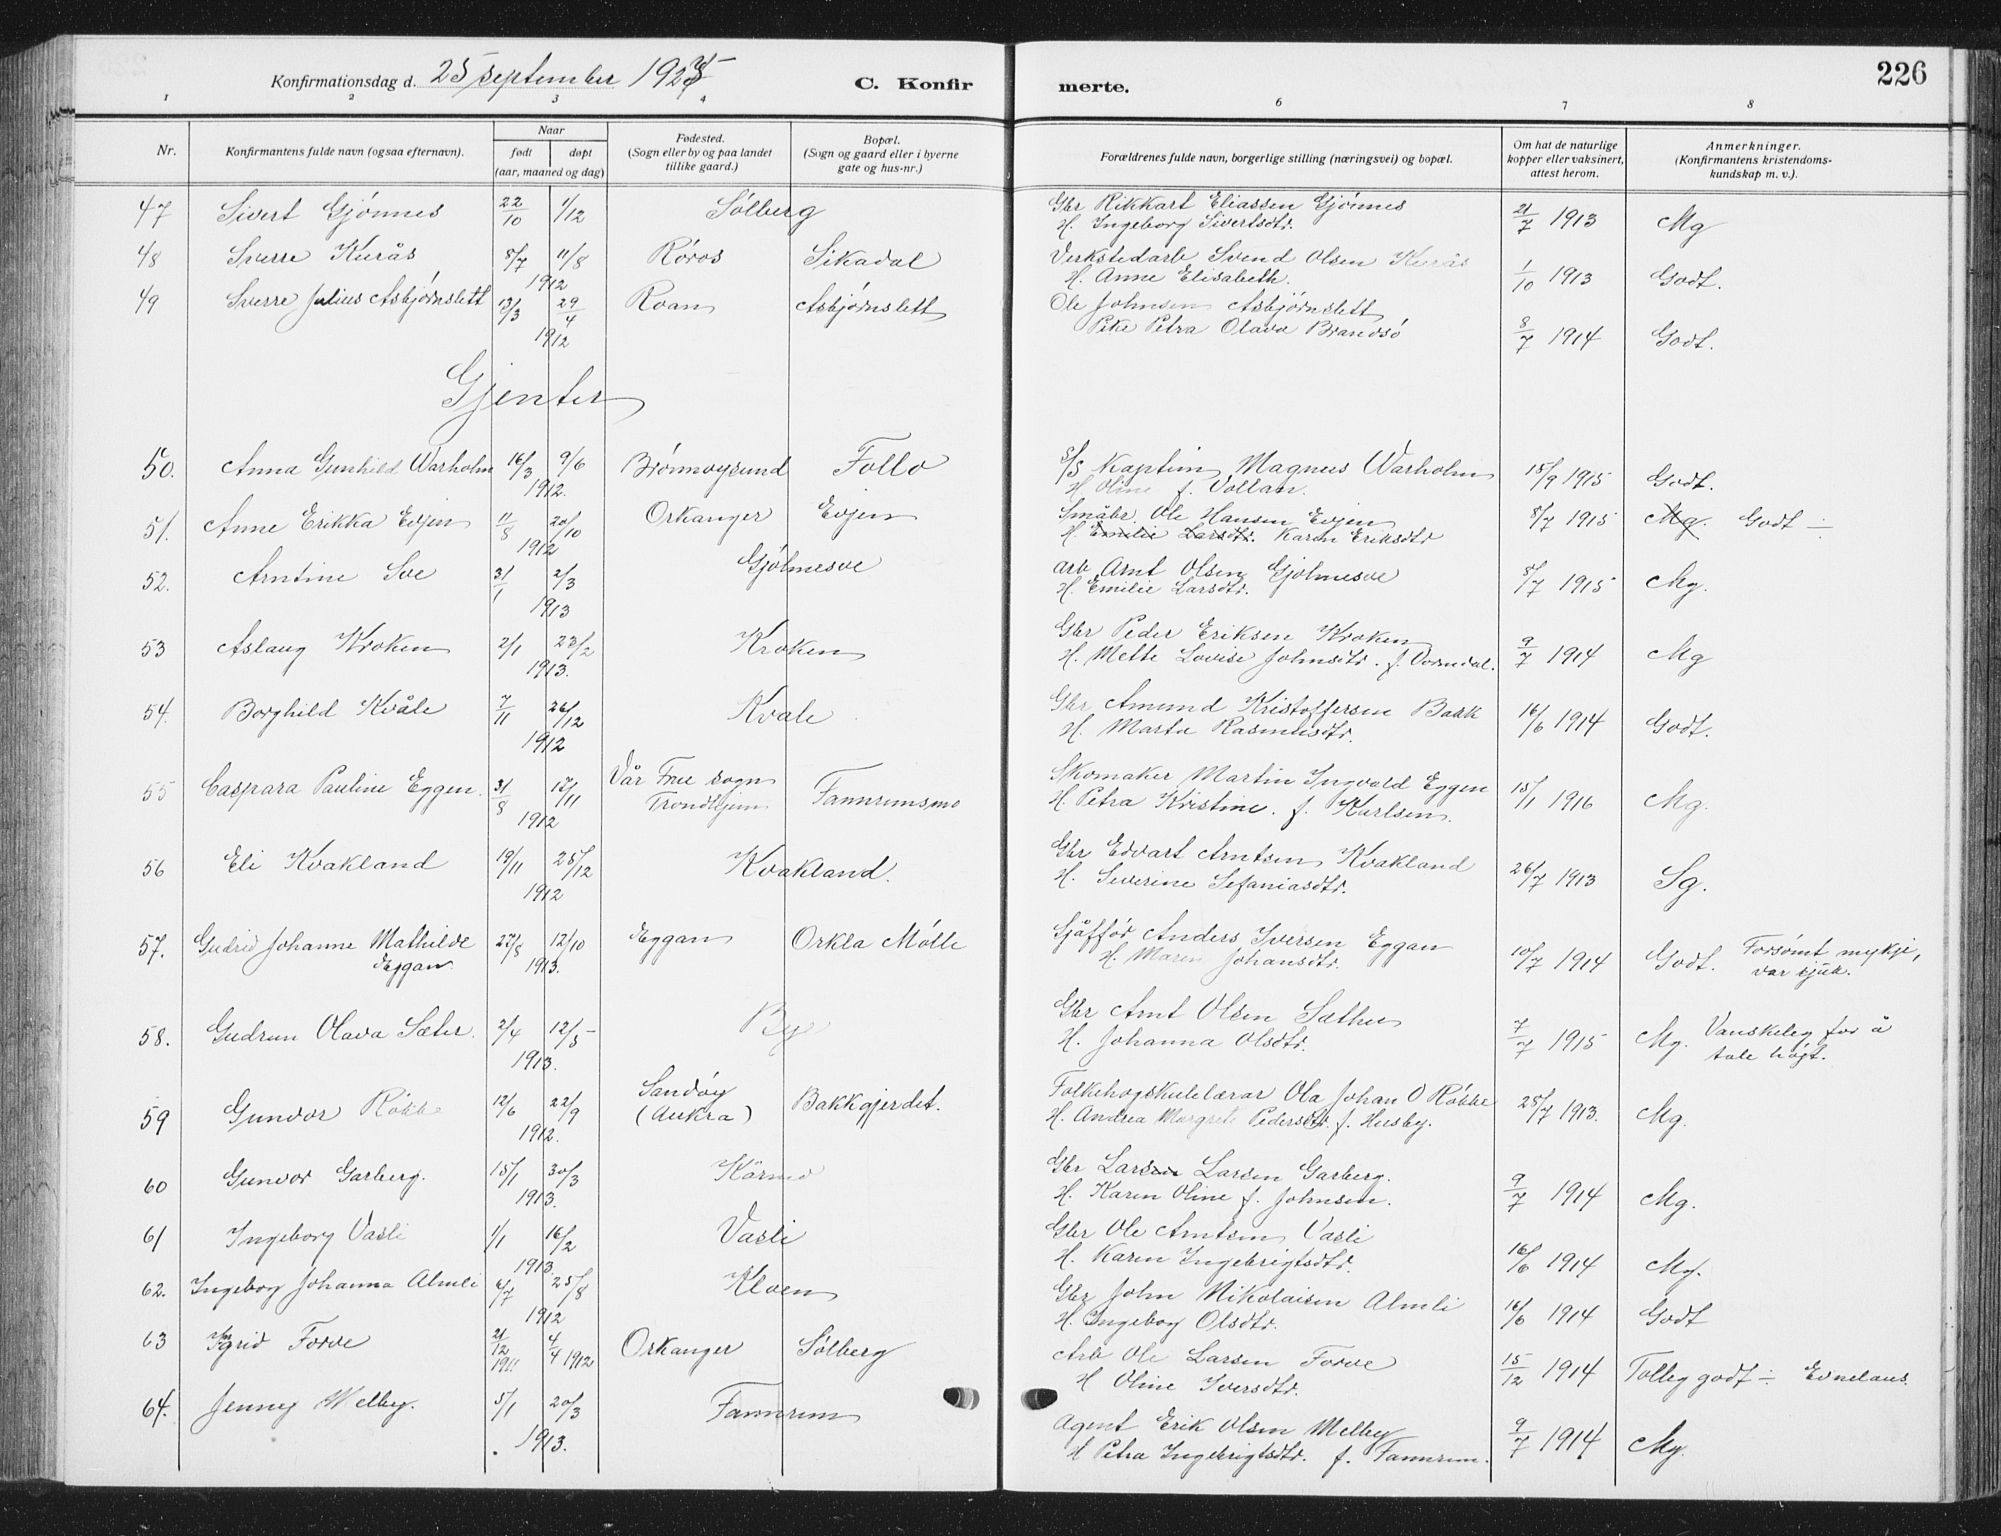 Konfirmationsdag d. 25 september 192
C. Konfir merte.
226
1 2 3 4 6 7 8
Nr.
Konfirmantens fulde navn (ogsaa efternavn).
Naar
født døpt
(aar, maaned og dag)
Fødested.
(Sogn eller by og paa landet
tillike gaard.)
Bopæl.
(Sogn og gaard eller i byerne
gate og hus-nr.)
Forældrenes fulde navn, borgerlige stilling (næringsvei) og bopæl.
Om hat de naturlige
kopper eller vaksinert,
attest herom.
Anmerkninger.
(Konfirmantens kristendoms-
kundskap m. v.).
47 Sivert Gjönnes 22/10 1/12 Sölberg Gbr Rikkart Eliassen Gjönnes 21/7 1913 Mg
H. Ingeborg Sivertsdtr.
48 Sverre Kurås 8/7 11/8 Röros Sikadal Verkstedarb Svend Olsen Kurås 1/10 1913 Godt.
1912 H. Anne Elisabeth.
49 Sverre Julius Asbjörnslett 13/3 29/4 Roan Asbjörnslett Ole Johnsen Asbjörnslett 8/7 1914 Godt.
1912 Pike Petra Olava Brandsö
Gjenter
50. Anna Gunhild Warholm 16/3 9/6 Brönnöysund Follo Kaptein Magnus Warholm 15/9 1915 Godt.
1912. H. Oline f. Vollan.
51. Anne Erikka Evjen 11/8 20/10 Orkanger Evjen Småbr. Ole Hansen Evjen 8/7 1915 Mg. Godt ÷
1912 H. Emilie Larsdtr. Karen Eriksdtr
52. Arntine Sve 31/1 2/3 Gjölmesve arb Arnt Olsen Gjölmesve 8/7 1915 Mg.
1913 H. Emilie Larsdtr.
53 Aslaug Kroken 2/1 23/2 Kroken Gbr Peder Eriksen Kroken 9/7 1914 Mg
1913. H. Mette Lovise Johnsdtr. f. Vormdal.
54. Borghild Kvåle 7/11 26/12 Kvale Gbr Amund Kristoffersen Bakk 16/6 1914 Godt.
1912 H. Marta Rasmusdtr.
55 Caspara Pauline Eggen. 31/8 17/11 Vår Frue sogn Fannremsmo Skomaker Martin Ingvald Eggen 15/1 1916 Mg.
1912 Trondhjem H. Petra Kristine. f. Karlsen.
56 Eli Kvakland 19/11 25/12 Kvakland. Gbr Edvart Arntsen Kvakland 26/7 1913 Sg.
1912 H. Severine Sefaniasdtr.
57. Gudrid Johanne Mathilde 27/8 12/10 Eggan Orkla Mölle Sjåfför Anders Iversen Eggan 10/7 1914 Godt. Forsömt mykje,
Eggan. 1913. H. Maren Johansdtr. var sjuk.
58. Gudrun Olava Sæter. 2/4 12/5 By Gbr Arnt Olsen Sæther 7/7 1915 Mg. Vanskeleg for å
1913. H. Johanna Olsdtr. tale högt.
59 Gunvor Rökke 12/6 22/9 Sandöy Bakkgjerdet. Folkehögskulelærar Ola Johan O Rökke 28/7 1913. Mg.
1912. (Aukra) H. Andrea Margrete Pedersdtr. f. Husby.
60 Gunvor Garberg. 15/1 30/3 Kårmo Gbr Larsen Larsen Garberg. 9/7 1914 Mg.
1913. H. Karen Oline f. Johnsen.
61 Ingeborg Vasli 1/1 16/2 Vasli Gbr Ole Arntsen Vasli 16/6 1914 Mg.
1913. H. Karen Ingebrigtsdtr.
62. Ingeborg Johanna Almli 6/7 25/8 Kloen Gbr John Nikolaisen Almli 16/6 1914 Godt
1912 H. Ingeborg Olsdtr.
63 Ingrid Forve 21/12 1911 4/4 1912 Orkanger Sölberg Arb Ole Larsen Forve 15/12 1914 Tolleg godt ÷ Evnelaus.
H Oline Iversdtr.
64. Jenney Melby. 5/1 20/3 Fannrem Agent Erik Olsen Melby 9/7 1914 Mg.
1913. H Petra Ingebrigtsdtr. f. Fannrem.